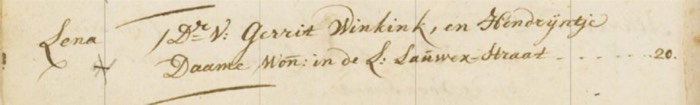 Lena / Dr. V: Gerrit Winkink, en Hendryntje
Daame Won: in de L: Lauwer-Straat - - - - - - 20.